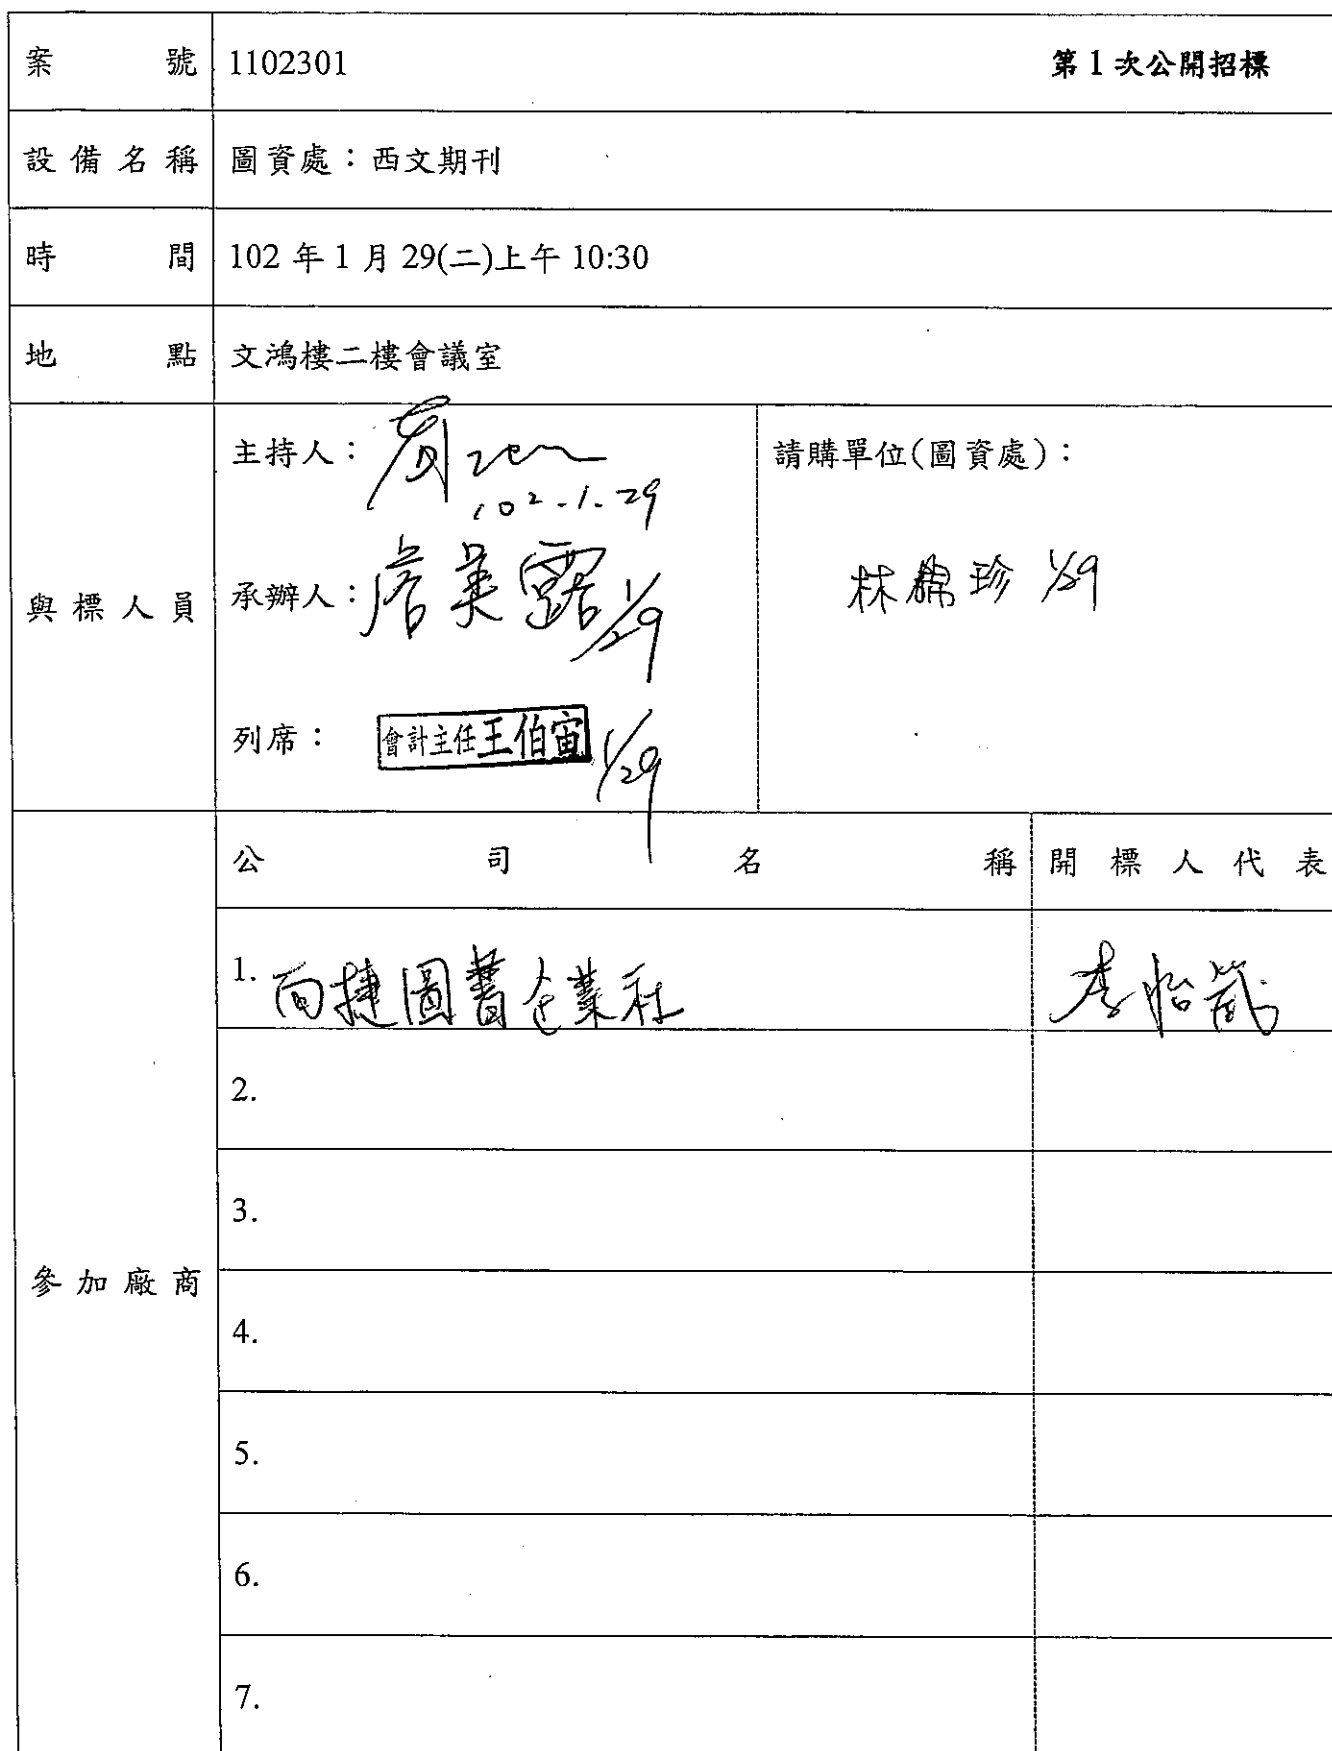 案號 1102301 第1次公開招標
設備名稱 圖資處：西文期刊
時間 102 年 1 月 29(二)上午 10:30
地點 文鴻樓二樓會議室
與標人員
主持人：
102.1.29
承辦人：詹美露 1/29
列席： 會計主任王伯宙 1/29
請購單位(圖資處)：
林錦珍 1/29
參加廠商
公司名稱 開標人代表
1. 百捷圖書企業社 李怡
2.
3.
4.
5.
6.
7.